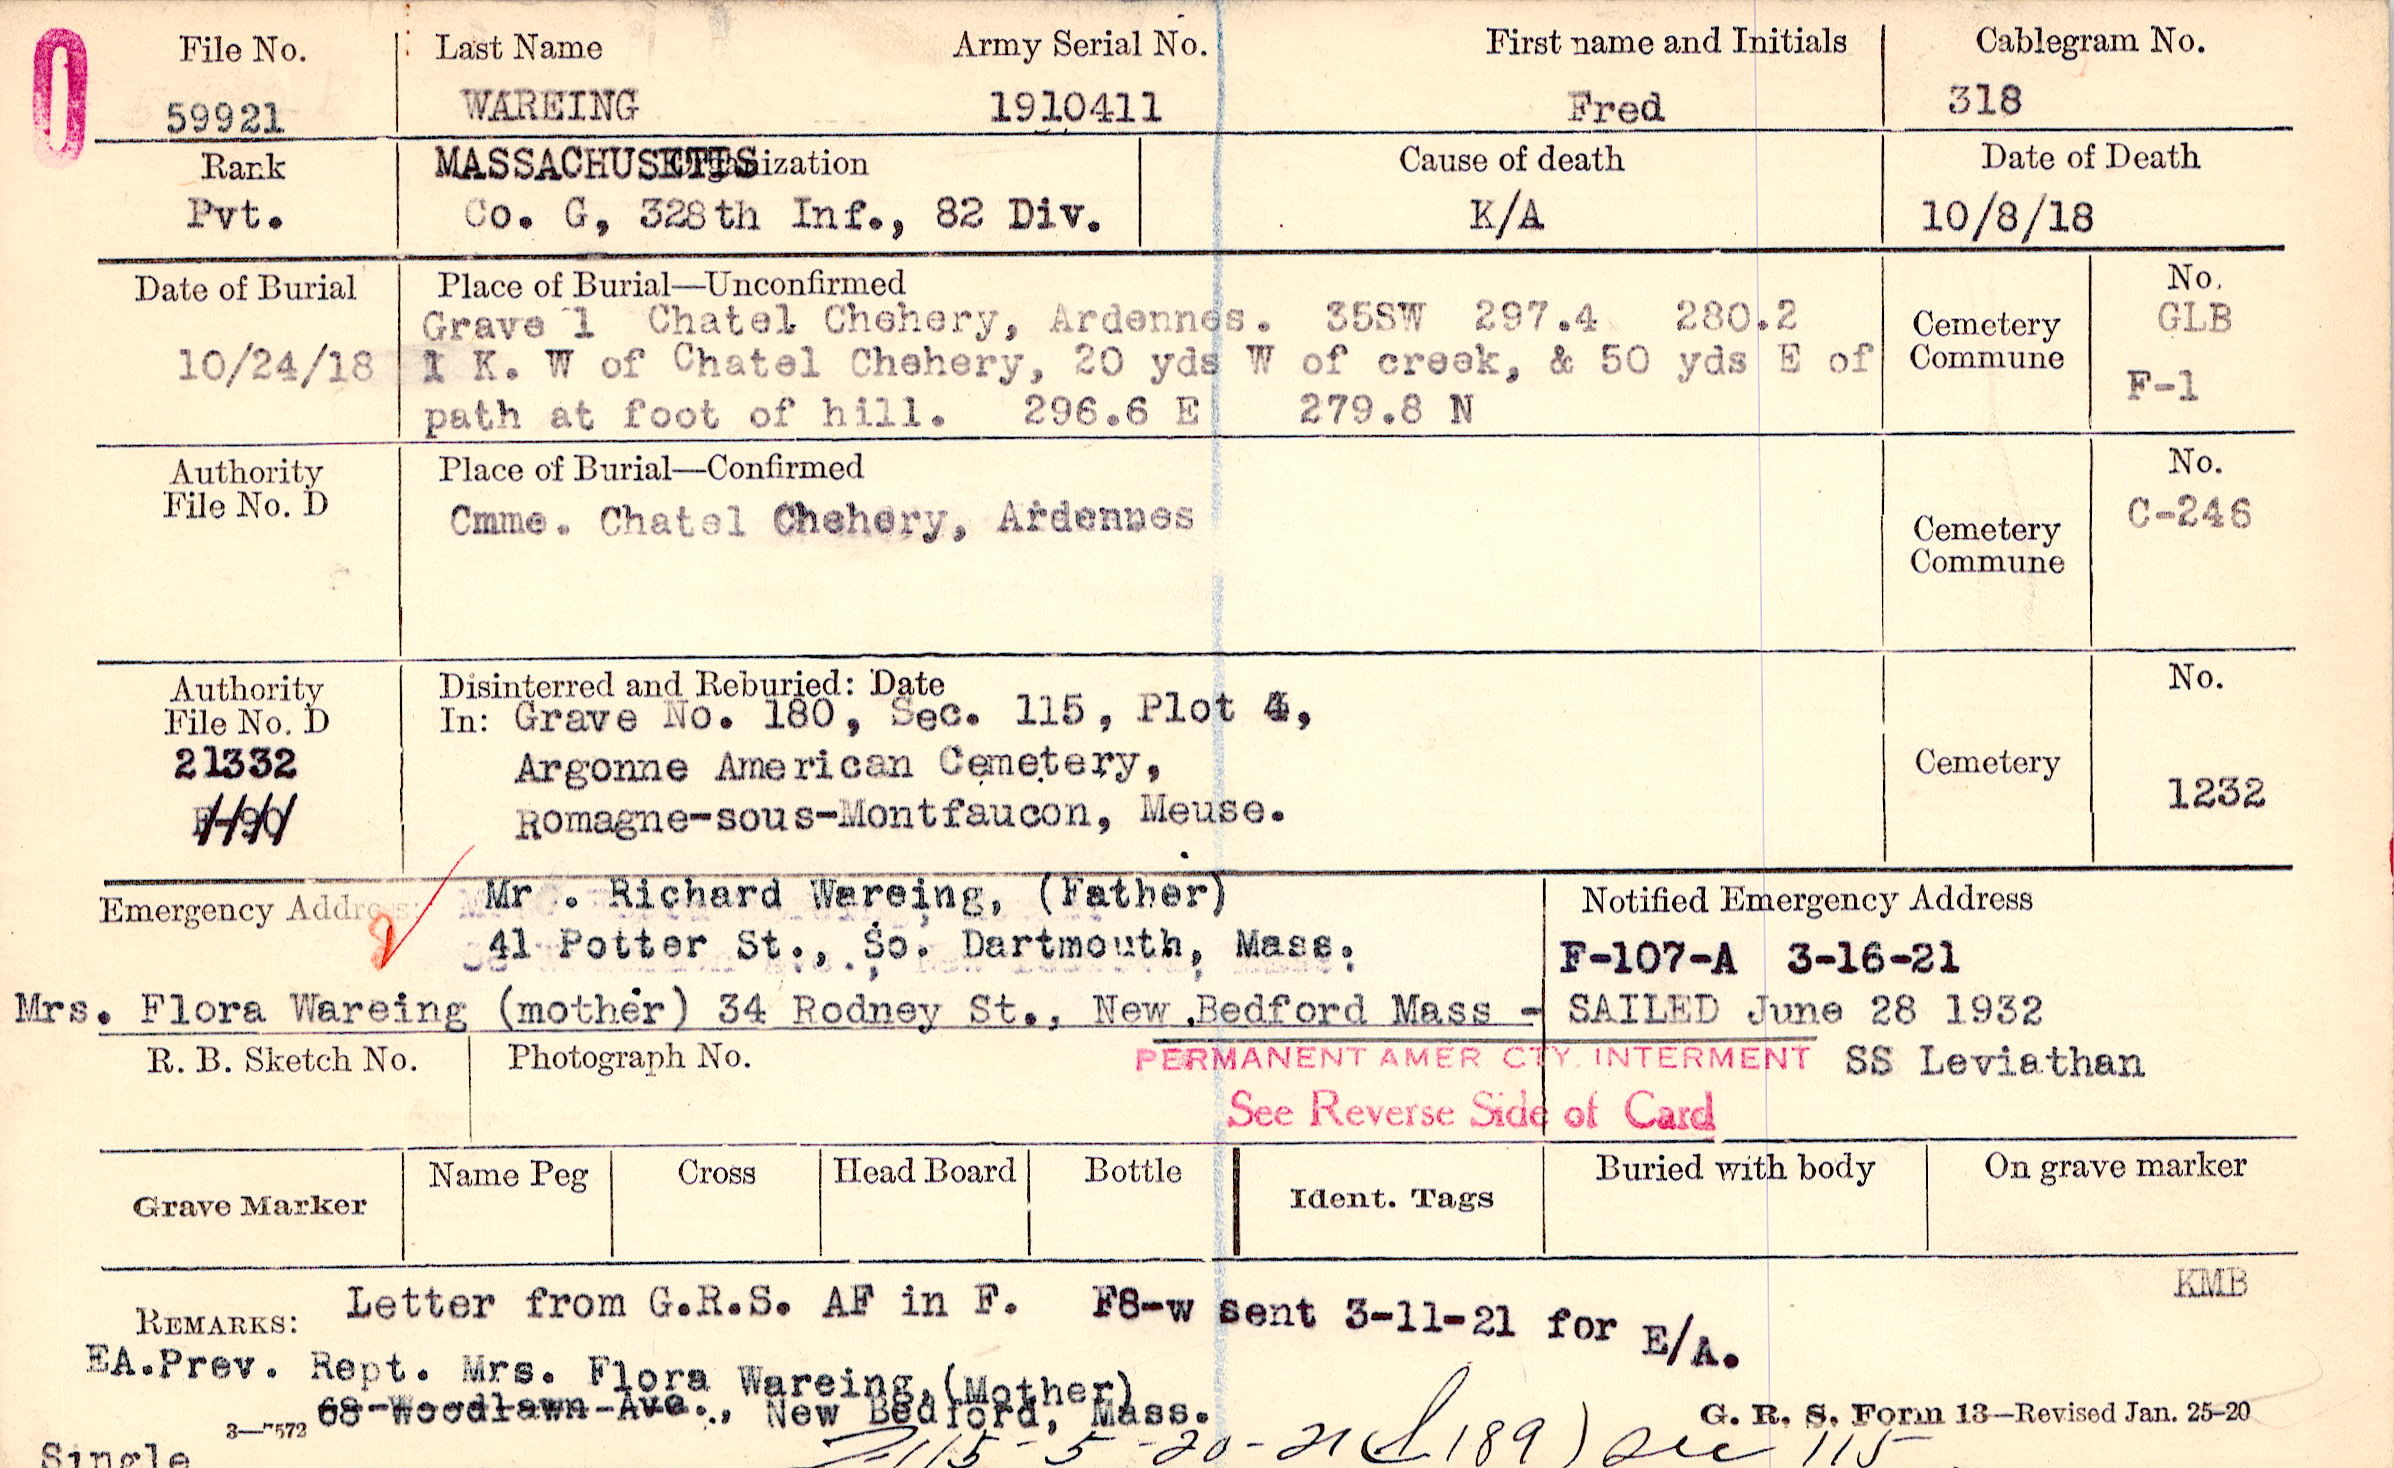 0
File No. Last Name Army Serial No. First name and Initials Cablegram No.
59921 WAREING 1910411 Fred 318
Rank MASSACHUSETTS Organization Cause of death Date of Death
Pvt. Co. G, 328th Inf., 82 Div. K/A 10/8/18
Date of Burial Place of Burial—Unconfirmed No.
Grave 1 Chatel Chehery, Ardennes. 35SW 297.4 280.2 Cemetery GLB
10/24/18 1 K. W of Chatel Chehery, 20 yds W of creek, & 50 yds E of Commune F-1
path at foot of hill. 296.6 E 279.8 N
Authority Place of Burial—Confirmed No.
File No. D Cmme. Chatel Chehery, Ardennes Cemetery C-246
Commune
Authority Disinterred and Reburied: Date No.
File No. D In: Grave No. 180, Sec. 115, Plot 4,
21332 Argonne American Cemetery, Cemetery
F-90 Romagne-sous-Montfaucon, Meuse. 1232
Emergency Address: Mr. Richard Wareing, (Father) Notified Emergency Address
41 Potter St., So. Dartmouth, Mass. F-107-A 3-16-21
Mrs. Flora Wareing (mother) 34 Rodney St., New Bedford Mass - SAILED June 28 1932
R. B. Sketch No. Photograph No. PERMANENT AMER CTY. INTERMENT SS Leviathan
See Reverse Side of Card
Grave Marker Name Peg Cross Head Board Bottle Ident. Tags Buried with body On grave marker
KMB
REMARKS: Letter from G.R.S. AF in F. F8-w sent 3-11-21 for E/A.
EA.Prev. Rept. Mrs. Flora Wareing,(Mother)
68-Woodlawn-Ave., New Bedford, Mass.
3—7572 G. R. S. Form 13—Revised Jan. 25-20
Single 115-5-20-21 189) Sec 115